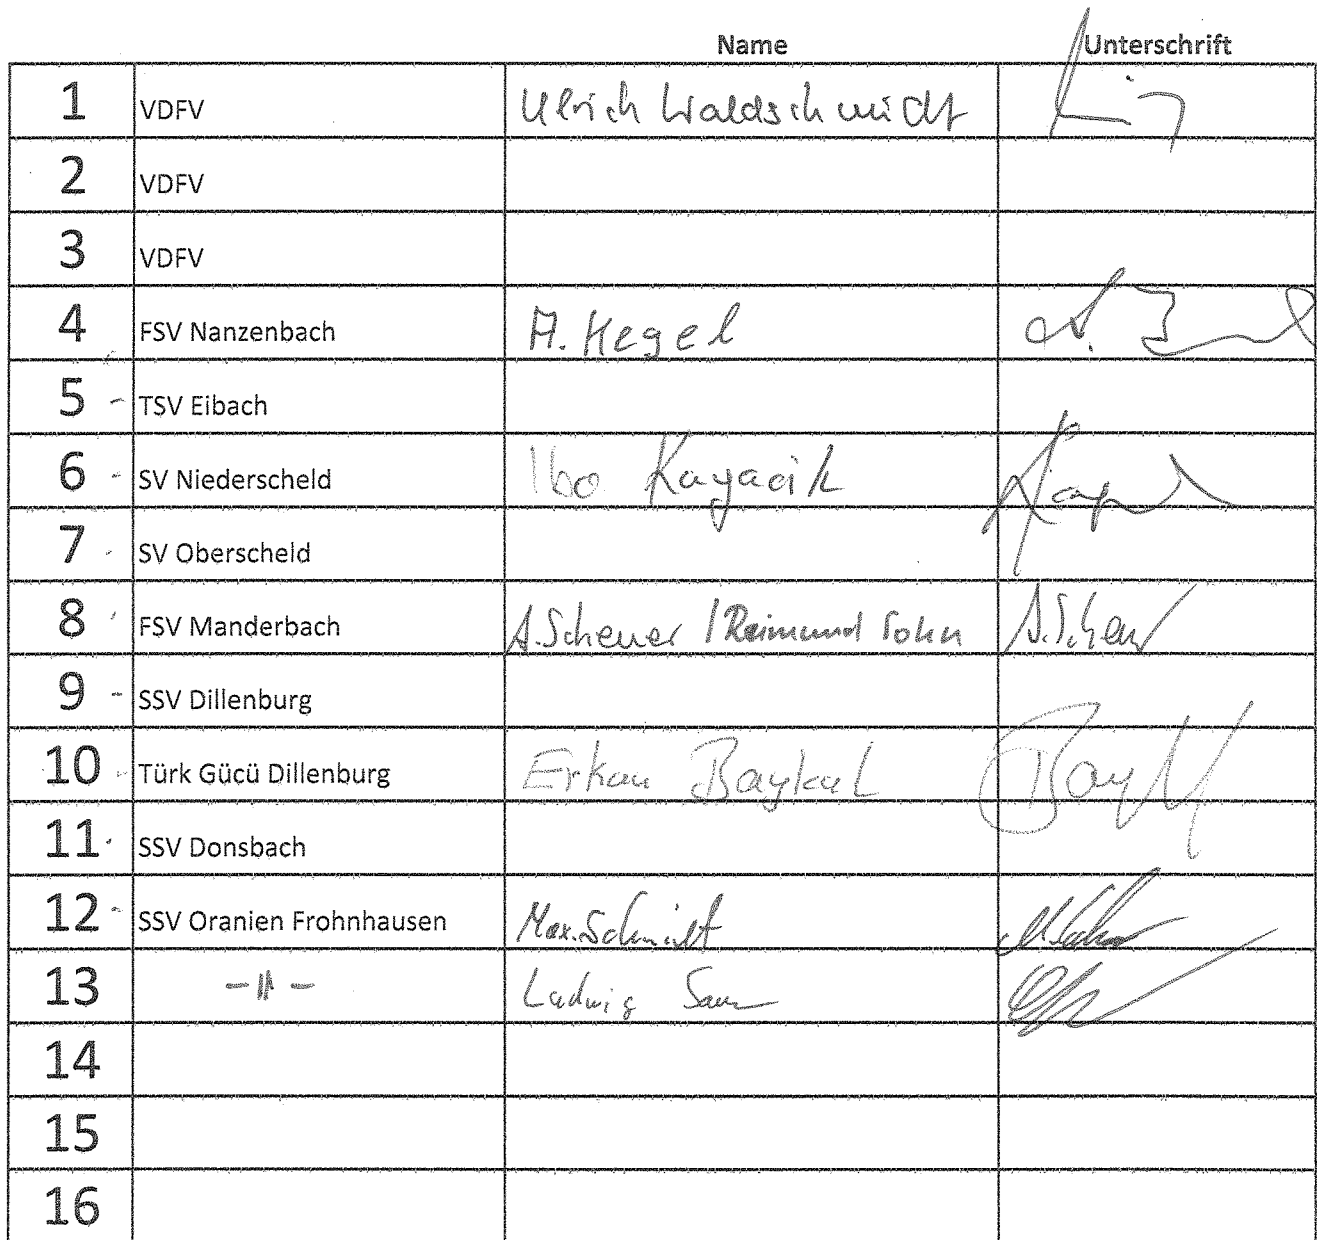 Name Unterschrift
1 VDFV Ulrich Waldschmidt
2 VDFV
3 VDFV
4 FSV Nanzenbach A. Hegel
5 - TSV Eibach
6 - SV Niederscheld Ibo Kayacik
7 - SV Oberscheld
8 FSV Manderbach A. Scheuer / Reimund Sohn A. Scheu
9 - SSV Dillenburg
10 - Türk Gücü Dillenburg Erkan Baykal
11 SSV Donsbach
12 - SSV Oranien Frohnhausen Max. Schmidt
13 -||- Ludwig
14
15
16